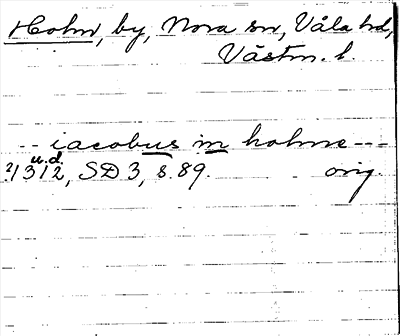 Holm, by, Nora sn, Våla hd,
Västm. l.
-- iacobus in holme ---
u.d.
1312, SD 3, s. 89. orig.